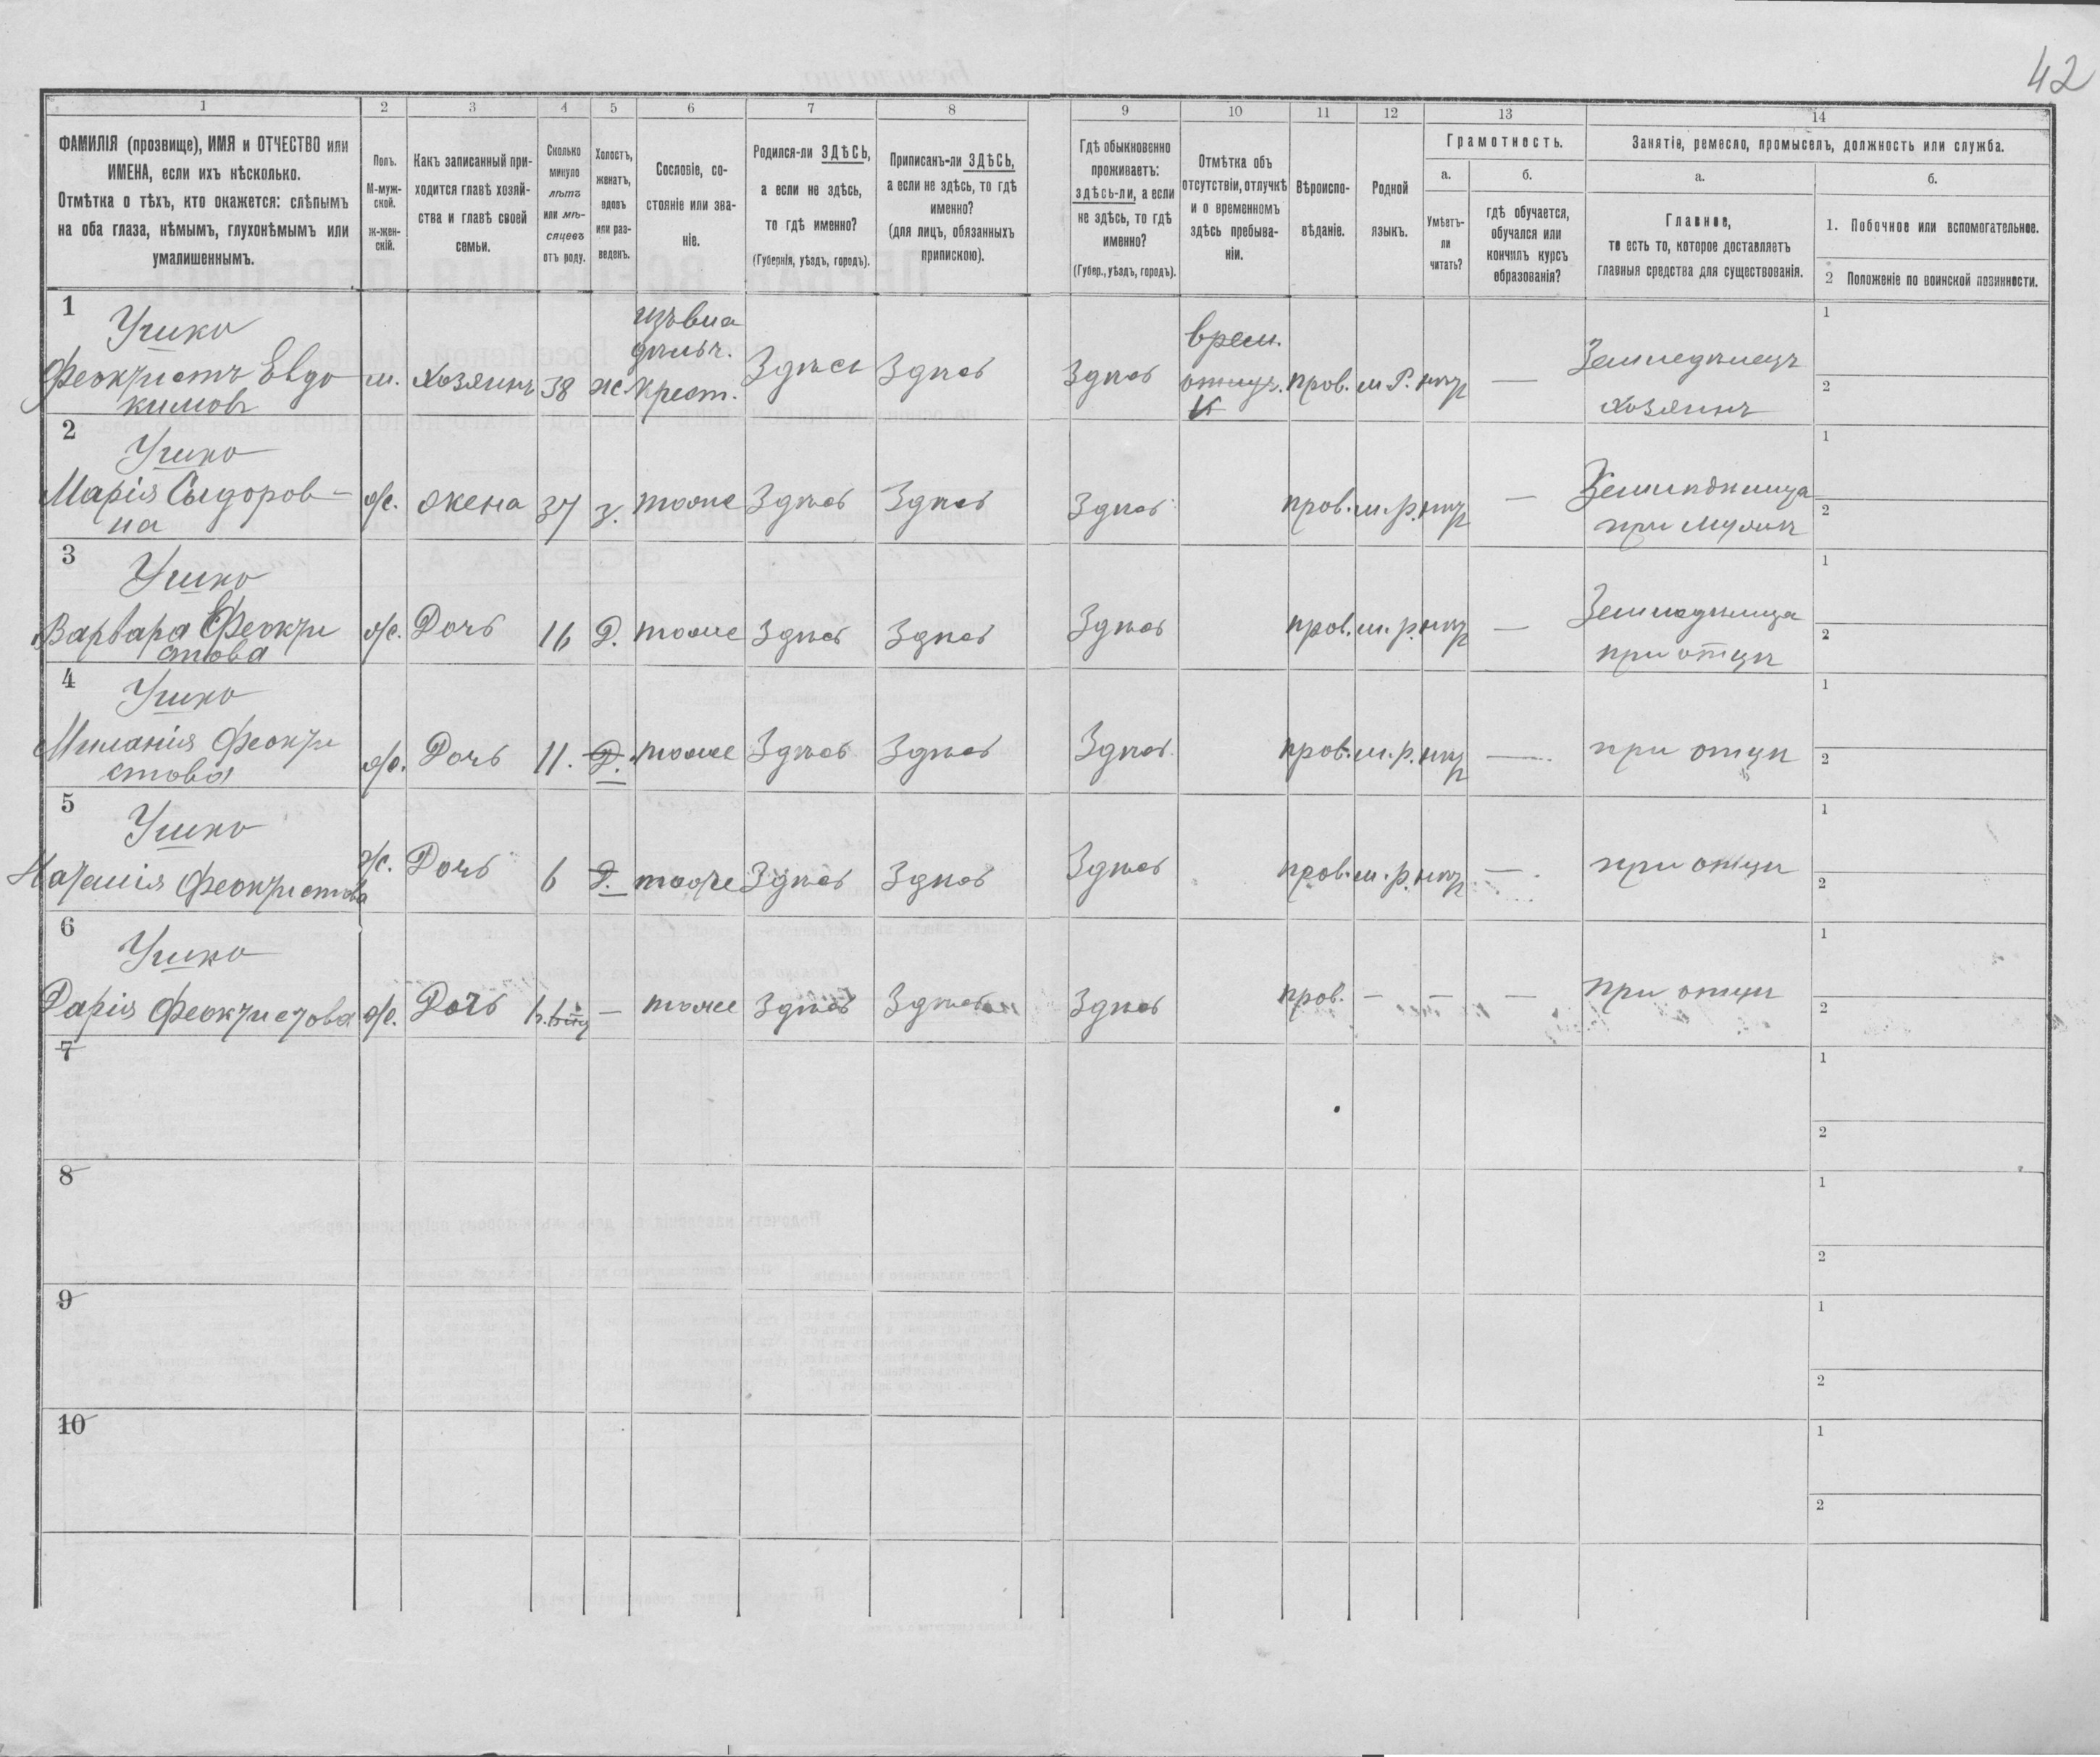 42
1 2 3 4 5 6 7 8 9 10 11 12 13 14
ФАМИЛІЯ (прозвище), ИМЯ и ОТЧЕСТВО или
ИМЕНА, если ихъ нѣсколько.
Отмѣтка о тѣхъ, кто окажется: слѣпымъ
на оба глаза, нѣмымъ, глухонѣмымъ или
умалишеннымъ.
Полъ.
М-муж-
ской.
Ж-жен-
скій.
Какъ записанный при-
ходится главѣ хозяй-
ства и главѣ своей
семьи.
Сколько
минуло
лѣтъ
или мѣ-
сяцевъ
отъ роду.
Холостъ,
женатъ,
вдовъ
или раз-
веденъ.
Сословіе, со-
стояніе или зва-
ніе.
Родился-ли ЗДѢСЬ,
а если не здѣсь,
то гдѣ именно?
(Губернія, уѣздъ, городъ).
Приписанъ-ли ЗДѢСЬ,
а если не здѣсь, то гдѣ
именно?
(для лицъ, обязанныхъ
припискою).
Гдѣ обыкновенно
проживаетъ:
здѣсь-ли, а если
не здѣсь, то гдѣ
именно?
(Губер., уѣздъ, городъ).
Отмѣтка объ
отсутствіи, отлучкѣ
и о временномъ
здѣсь пребыва-
ніи.
Вѣроиспо-
вѣданіе.
Родной
языкъ.
Грамотность.
а.
Умѣетъ-
ли
читать?
б.
гдѣ обучается,
обучался или
кончилъ курсъ
образованія?
Занятіе, ремесло, промыселъ, должность или служба.
а.
Главное,
то есть то, которое доставляетъ
главныя средства для существованія.
б.
1. Побочное или вспомогательное.
2 Положеніе по воинской повинности.
1
Ушко
Феоктистъ Евдо
кимовъ
м. Хозяинъ 38 ж.
изъ вла
дѣльч.
крест.
Здѣсь Здѣсь Здѣсь
врем.
отлуч.
пров. м.Р. нѣт —
Земледѣлецъ
хозяинъ
1
2
2
Ушко
Марія Сыдоров-
на
ж. жена 37 з. тоже Здѣсь Здѣсь Здѣсь пров. м.р. нѣт —
Земледѣлица
при мужѣ
1
2
3
Ушко
Варвара Феокти
стова
ж. Дочь 16 Д. тоже Здѣсь Здѣсь Здѣсь пров. м.р. нѣт —
Земледѣлица
при отцѣ
1
2
4
Ушко
Миланія Феокти
стова
ж. Дочь 11. Д. тоже Здѣсь Здѣсь Здѣсь пров. м.р. нѣт — при отцѣ
1
2
5
Ушко
Наталія Феоктистова
ж. Дочь 6 Д. тоже Здѣсь Здѣсь Здѣсь пров. м.р. нѣт — при отцѣ
1
2
6
Ушко
Дарія Феоктистова
ж. Дочь — тоже Здѣсь Здѣсь Здѣсь пров. — — — при отцѣ
1
2
7
1
2
8
1
2
9
1
2
10
1
2